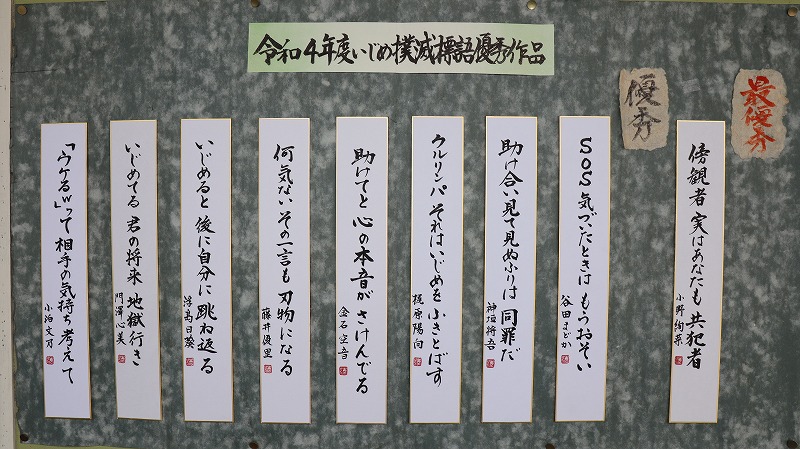 令和4年度いじめ撲滅標語優秀作品
最優秀
傍観者 実はあなたも 共犯者
小野絢菜
優秀
SOS 気づいたときは もうおそい
谷田まどか
助け合い 見て見ぬふりは 同罪だ
神垣将吾
クルリンパ それはいじめを ふきとばす
梶原陽向
助けてと 心の本音が さけんでる
金石空音
何気ない その一言も 刃物になる
藤井優里
いじめると 後に自分に 跳ね返る
いじめてる 君の将来 地獄行き
門澤心美
「ウケるw」って 相手の気持ち 考えて